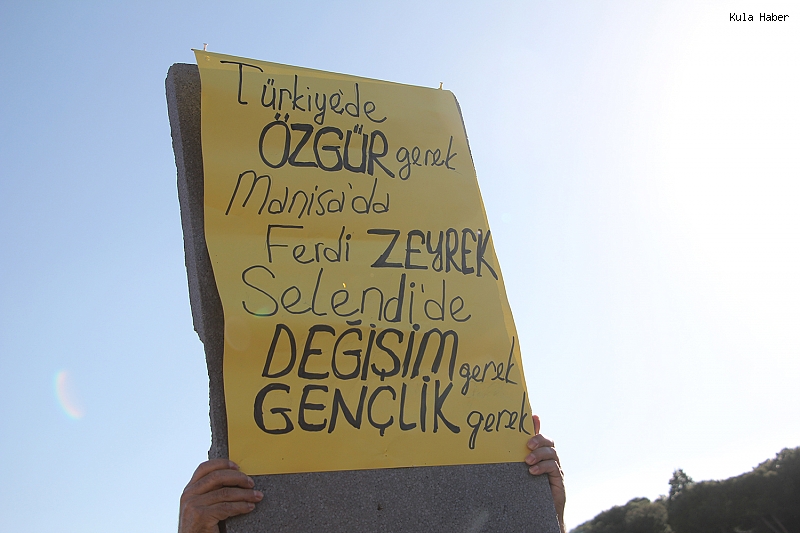 Kula Haber
Türkiye'de
ÖZGÜR gerek
Manisa'da
Ferdi ZEYREK
Selendi'de
DEĞİŞİM gerek
GENÇLİK gerek